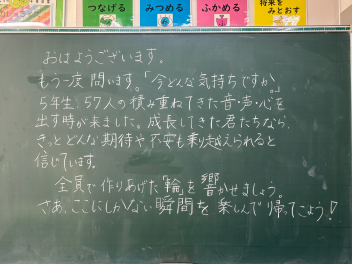 つなげる
みつめる
ふかめる
将来を
みとおす
おはようございます。
もう一度問います。「今どんな気持ちですか。」
5年生、57人の積み重ねてきた音・声・心を
出す時が来ました。成長してきた君たちなら、
きっとどんな期待や不安も乗り越えられると
信じています。
全員で作りあげた「輪」を響かせましょう。
さあ、ここにしかない瞬間を楽しんで帰ってこよう!